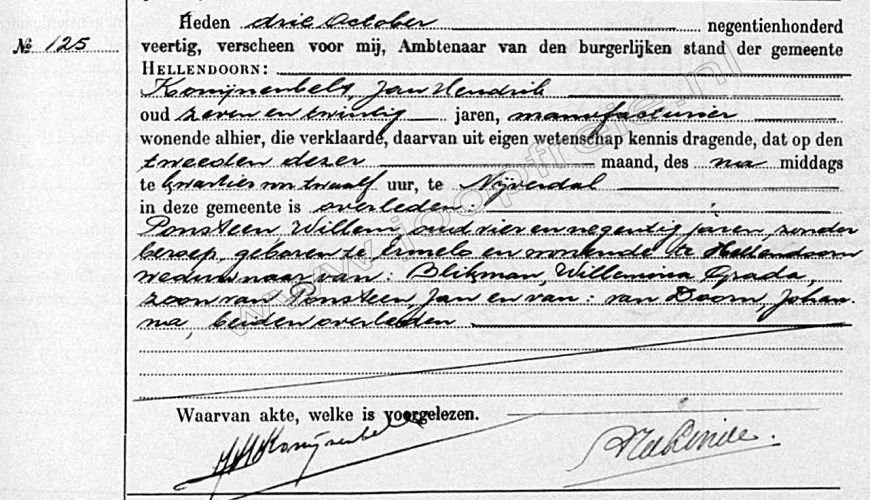 Heden drie October negentienhonderd
№ 125
veertig, verscheen voor mij, Ambtenaar van den burgerlijken stand der gemeente
HELLENDOORN:
Konijnenbelt, Jan Hendrik
oud zeven en twintig jaren, manufacturier
wonende alhier, die verklaarde, daarvan uit eigen wetenschap kennis dragende, dat op den
tweeden dezer maand, des na middags
te kwartier voor twaalf uur, te Nijverdal
in deze gemeente is overleden:
Ponsteen, Willem, oud vier en negentig jaren, zonder
beroep, geboren te Ermelo en wonende te Hellendoorn
weduwnaar van: Blikman, Willemina Grada,
zoon van Ponsteen, Jan en van: van Doorn, Johan-
na, beiden overleden
Waarvan akte, welke is voorgelezen.
JHKonijnenbelt
www.joopfreie.nl